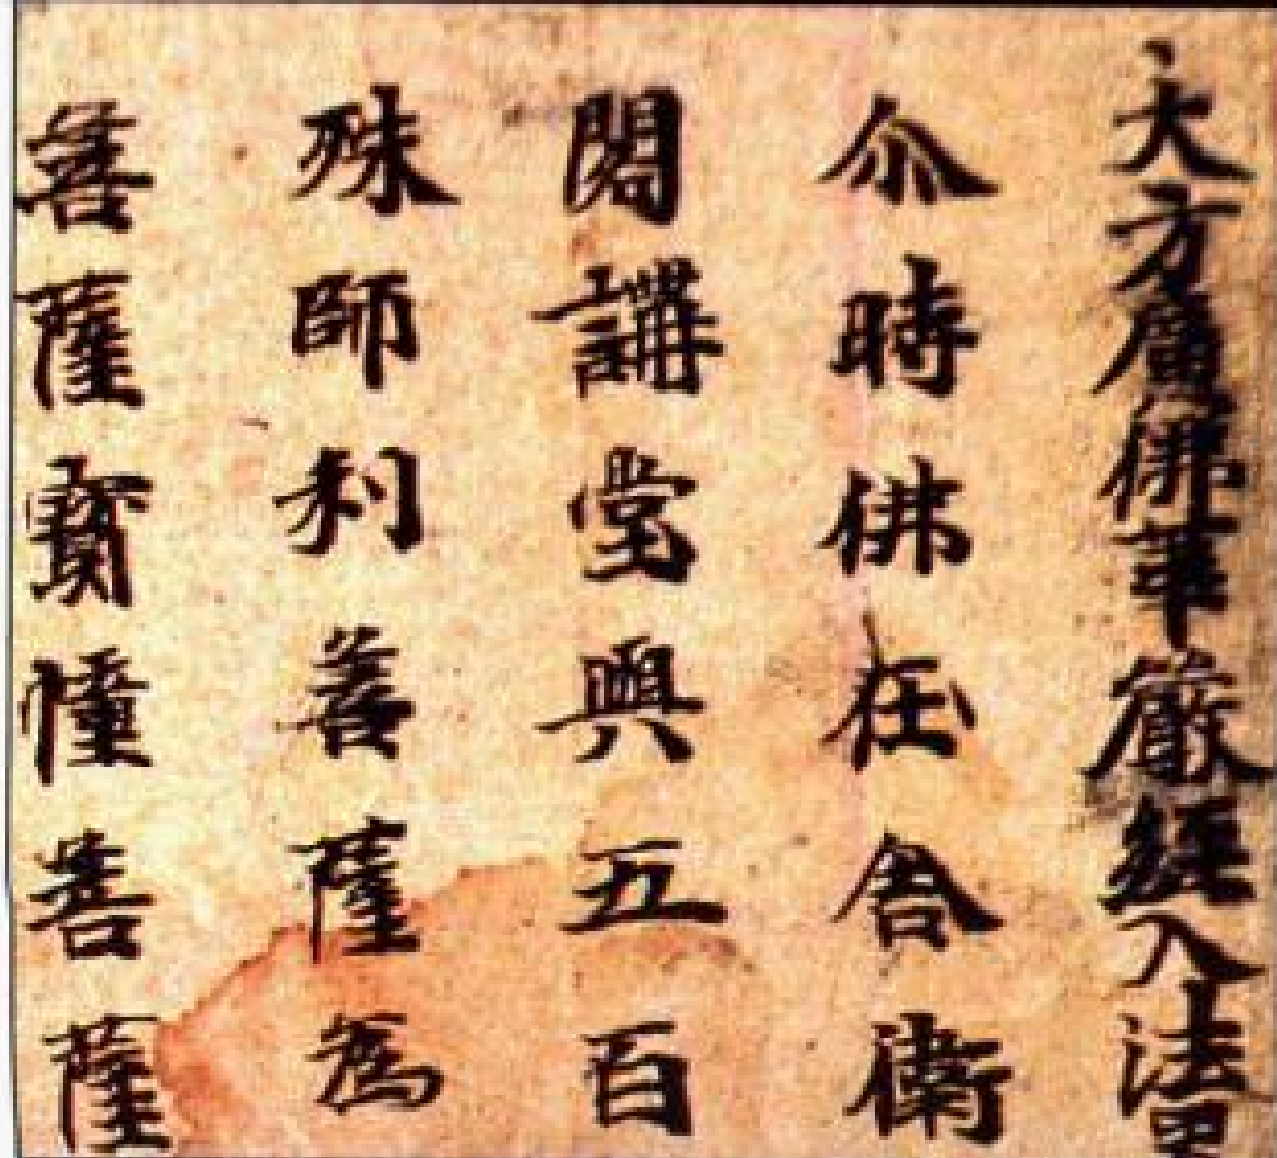 大方廣佛華嚴經入法界
尒時佛在舍衛
閣講堂與五百
殊師利菩薩為
菩薩寶幢菩薩